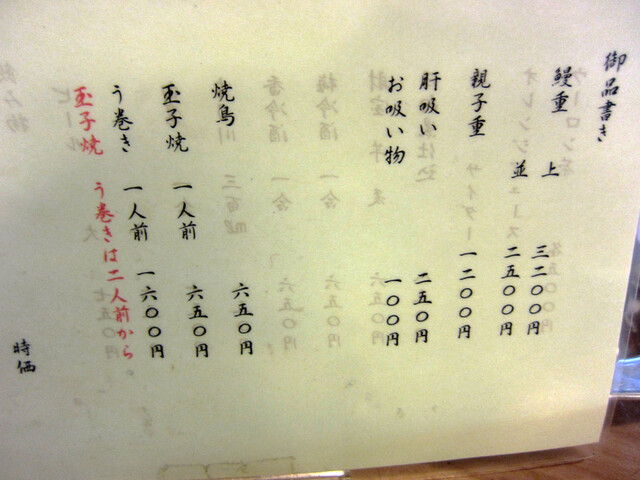 御品書き
鰻重 上 三二〇〇円
並 二五〇〇円
親子重 一二〇〇円
肝吸い 二五〇円
お吸い物 一〇〇円
焼鳥 六五〇円
玉子焼 一人前 六五〇円
う巻き 一人前 一六〇〇円
玉子焼 う巻きは二人前から
時価